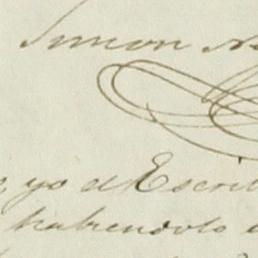 Simon
yo el Escrib
habiendolo